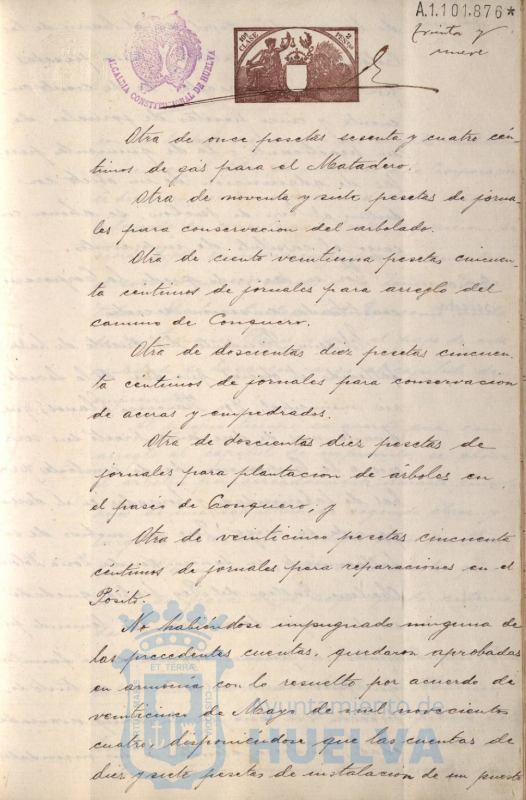 A.1.101.876*
treinta y
nueve
ALCALDIA CONSTITUCIONAL DE HUELVA
10ª CLASE
2 PESETAS
Otra de once pesetas sesenta y cuatro cén-
timos de gas para el Matadero.
Otra de noventa y siete pesetas de jorna-
les para conservacion del arbolado.
Otra de ciento veintiuna pesetas cincuen-
ta centimos de jornales para arreglo del
camino de Conquero.
Otra de doscientas diez pesetas cincuen-
ta centimos de jornales para conservacion
de aceras y empedrados.
Otra de doscientas diez pesetas de
jornales para plantacion de árboles en
el paseo de Conquero, y
Otra de veinticinco pesetas cincuenta
céntimos de jornales para reparaciones en el
Pósito.
No habiéndose impugnado ninguna de
las precedentes cuentas, quedaron aprobadas
en armonía con lo resuelto por acuerdo de
veinticinco de Mayo de mil novecientos
cuatro, disponiéndose que las cuentas de
diez y siete pesetas de instalacion de un puesto
ET TERRÆ
Ayuntamiento de
HUELVA